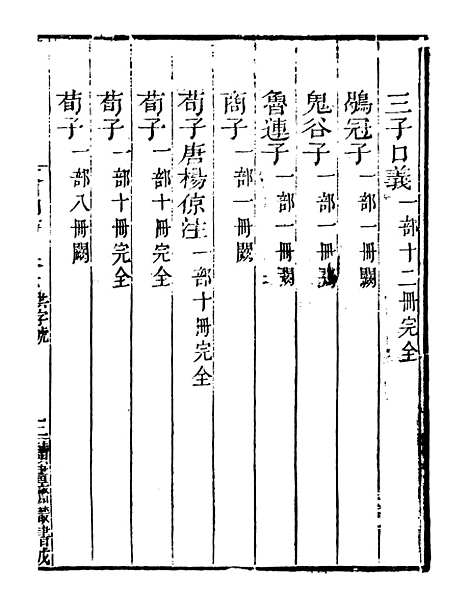 三子口義一部十二冊完全
鶡冠子一部一冊闕
鬼谷子一部一冊
魯連子一部一冊
商子一部一冊闕
荀子唐楊倞注一部十冊完全
荀子一部十冊完全
荀子一部十冊完全
荀子一部八冊闕
字號
三 讀畫齋叢書